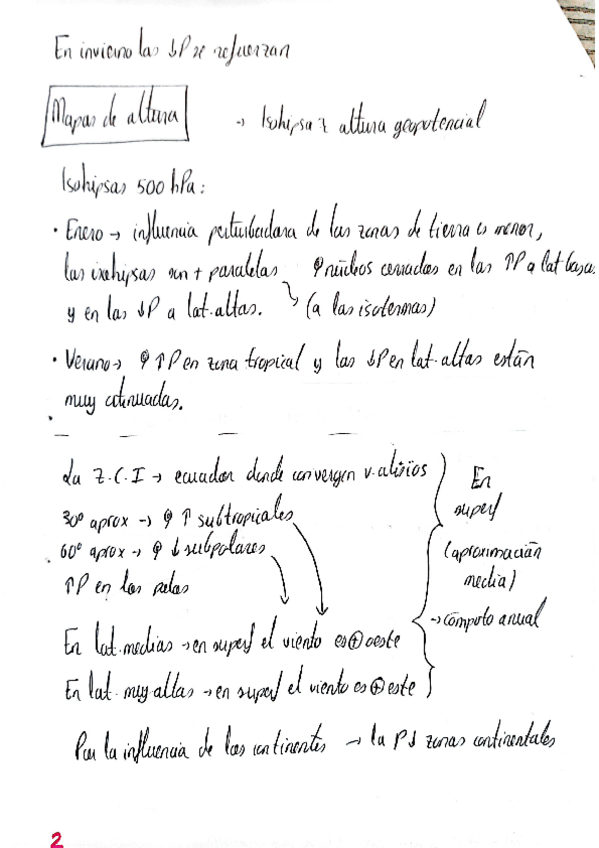 En invierno las ↓P se refuerzan
Mapas de altura → Isohipsas altura geopotencial
Isohipsas 500 hPa:
· Enero → influencia perturbadora de las zonas de tierra es menor,
las isohipsas son + paralelas núcleos cerrados en las ↑P a lat bajas
y en las ↓P a lat. altas. (a las isotermas)
· Verano → ↑P en zona tropical y las ↓P en lat. altas están
muy atenuadas.
La Z.C.I → ecuador donde convergen v. alisios
30º aprox → ↑ subtropicales
60º aprox → ↓ subpolares
↑P en los polos
En superf
(aproximación
media)
→ cómputo anual
En lat. medias → en superf el viento es ⊕ oeste
En lat. muy altas → en superf el viento es ⊕ este
Por la influencia de los continentes → la P↓ zonas continentales
2